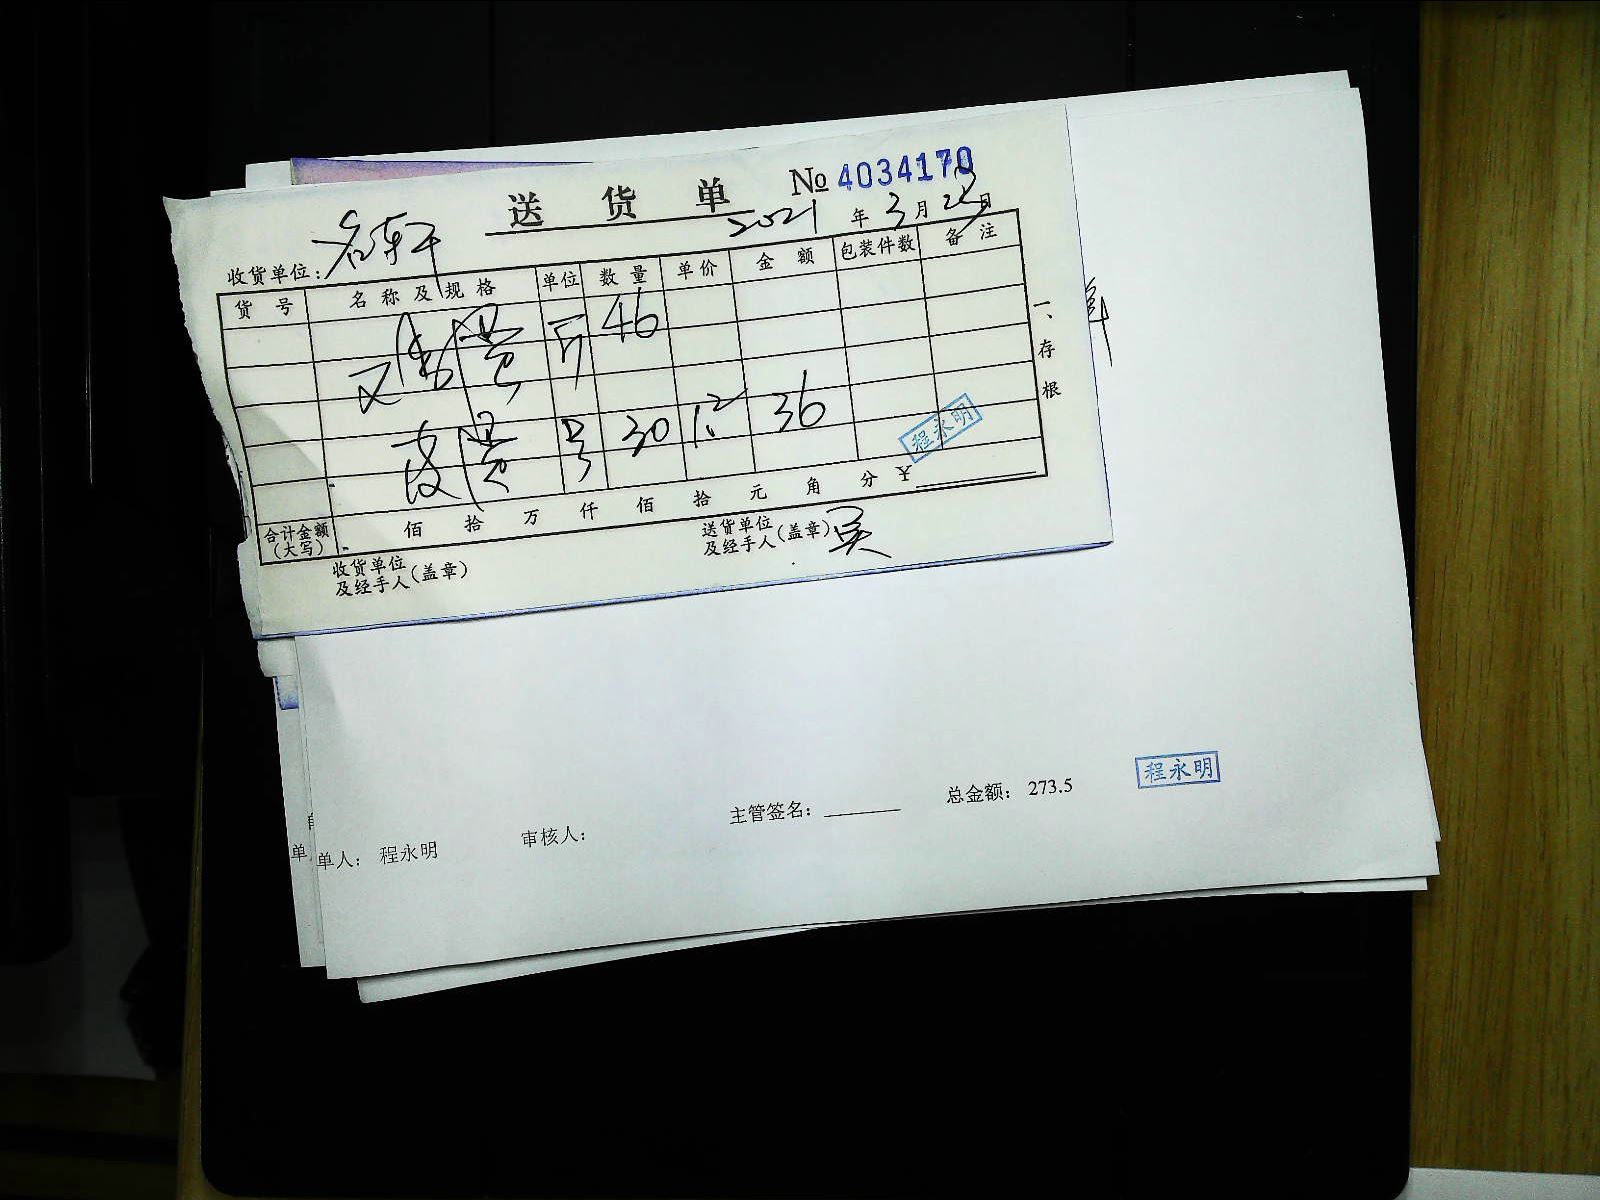 送 货 单 № 4034170
2021 年 3 月 23 日
收货单位：
货 号 名 称 及 规 格 单位 数 量 单 价 金 额 包装件数 备 注
斤 46
30 1.2 36
程永明
合计金额（大写） 佰 拾 万 仟 佰 拾 元 角 分 ¥
收货单位及经手人（盖章）
送货单位及经手人（盖章） 吴
一、存根
单人： 程永明 审核人： 主管签名： 总金额： 273.5 程永明